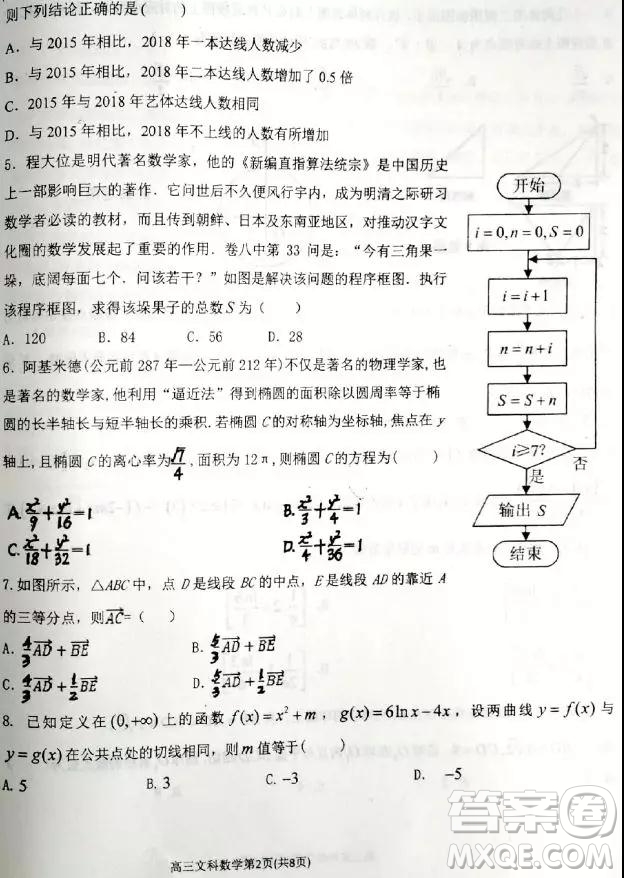 则下列结论正确的是(　　)
A. 与 2015 年相比，2018 年一本达线人数减少
B. 与 2015 年相比，2018 年二本达线人数增加了 0.5 倍
C. 2015 年与 2018 年艺体达线人数相同
D. 与 2015 年相比，2018 年不上线的人数有所增加
5. 程大位是明代著名数学家，他的《新编直指算法统宗》是中国历史
上一部影响巨大的著作．它问世后不久便风行宇内，成为明清之际研习
数学者必读的教材，而且传到朝鲜、日本及东南亚地区，对推动汉字文
化圈的数学发展起了重要的作用．卷八中第 33 问是：“今有三角果一
垛，底阔每面七个．问该若干？”如图是解决该问题的程序框图．执行
该程序框图，求得该垛果子的总数 S 为（　　）
A. 120　B. 84　C. 56　D. 28
开始
i=0,n=0,S=0
i=i+1
n=n+i
S=S+n
i≥7?
否
是
输出 S
结束
6. 阿基米德(公元前 287 年—公元前 212 年)不仅是著名的物理学家，也
是著名的数学家，他利用“逼近法”得到椭圆的面积除以圆周率等于椭
圆的长半轴长与短半轴长的乘积．若椭圆 C 的对称轴为坐标轴,焦点在 y
轴上,且椭圆 C 的离心率为√7/4,面积为 12π,则椭圆 C 的方程为(　　)
A. x²/9+y²/16=1　B. x²/3+y²/4=1
C. x²/18+y²/32=1　D. x²/4+y²/36=1
7.如图所示，△ABC 中，点 D 是线段 BC 的中点，E 是线段 AD 的靠近 A
的三等分点，则AC→=（　　）
A. 4/3 AD→+BE→　B. 5/3 AD→+BE→
C. 4/3 AD→+1/2 BE→　D. 5/3 AD→+1/2 BE→
8. 已知定义在(0,+∞)上的函数 f(x)=x²+m，g(x)=6lnx-4x，设两曲线 y=f(x)与
y=g(x)在公共点处的切线相同，则 m 值等于（　　）
A. 5　B. 3　C. -3　D. -5
高三文科数学第2页(共8页)
答案圈
MXQE.COM